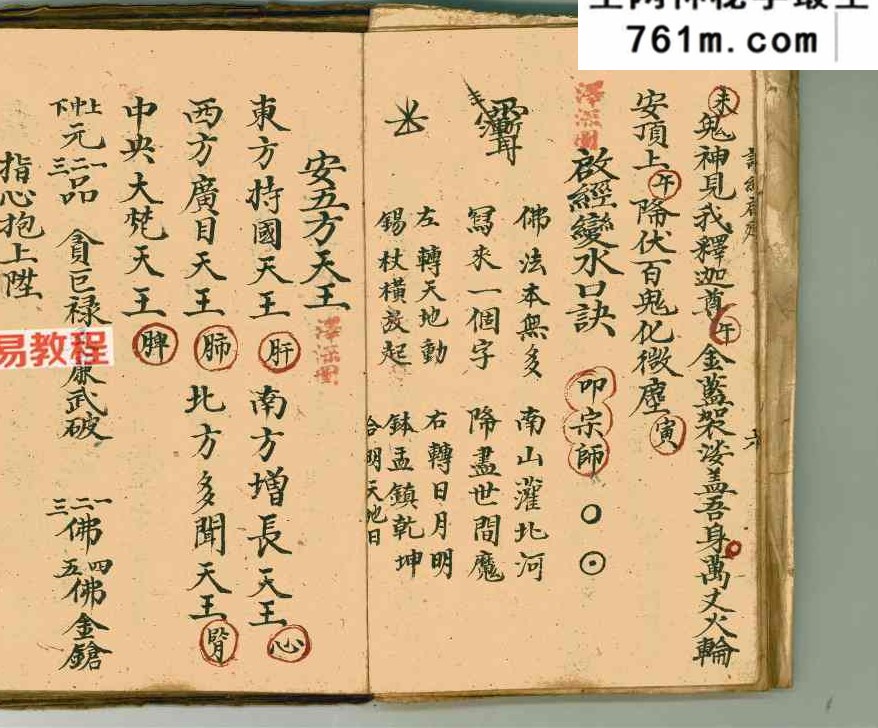 761m.com
㊍鬼神見我釋迦尊 午 金藍袈裟盖吾身 萬丈火輪
安頂上 午 降伏百鬼化微塵 寅
啟經變水口訣 叩宗師
澤深圖
佛法本無多 南山灌北河
寫來一個字 降盡世間魔
左轉天地動 右轉日月明
錫杖橫發起 鉢盂鎮乾坤
合明天地日
六
安五方天王
澤深圖
東方持國天王 肝 南方增長天王 心
西方廣目天王 肺 北方多聞天王 腎
中央大梵天王 脾
上中下元一二三品 貪巨禄 廉武破 一二三佛四五佛金鎗
指心抱上陞
易教程